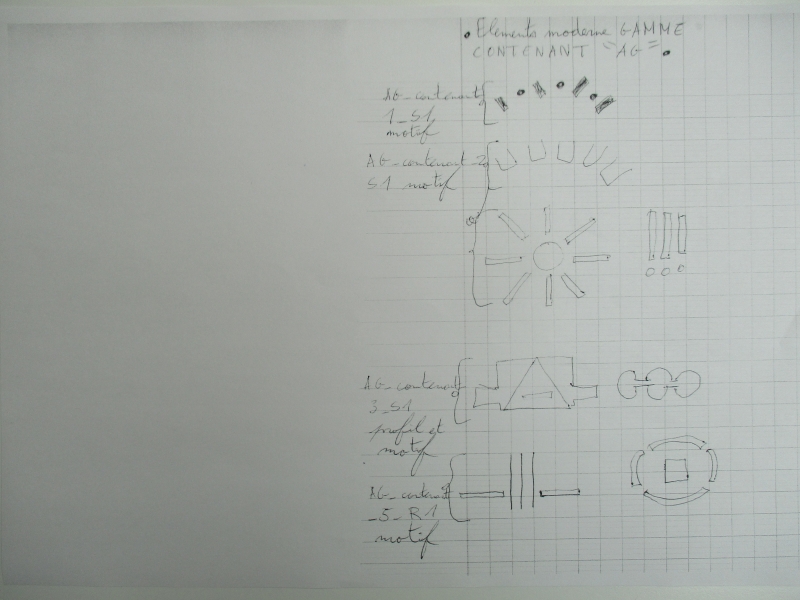 • Elements moderne GAMME
CONTENANT "AG" •
AG_contenant
1_S1
motif
AG_contenant_2
S1_motif
AG_contenant
3_S1
profil et
motif
AG_contenant
_5_R1
motif